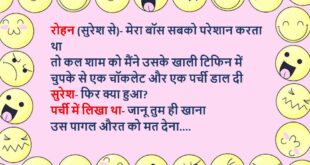 रोहन (सुरेश से)- मेरा बॉस सबको परेशान करता
था
तो कल शाम को मैंने उसके खाली टिफिन में
चुपके से एक चॉकलेट और एक पर्ची डाल दी
सुरेश- फिर क्या हुआ?
पर्ची में लिखा था- जानू तुम ही खाना
उस पागल औरत को मत देना....